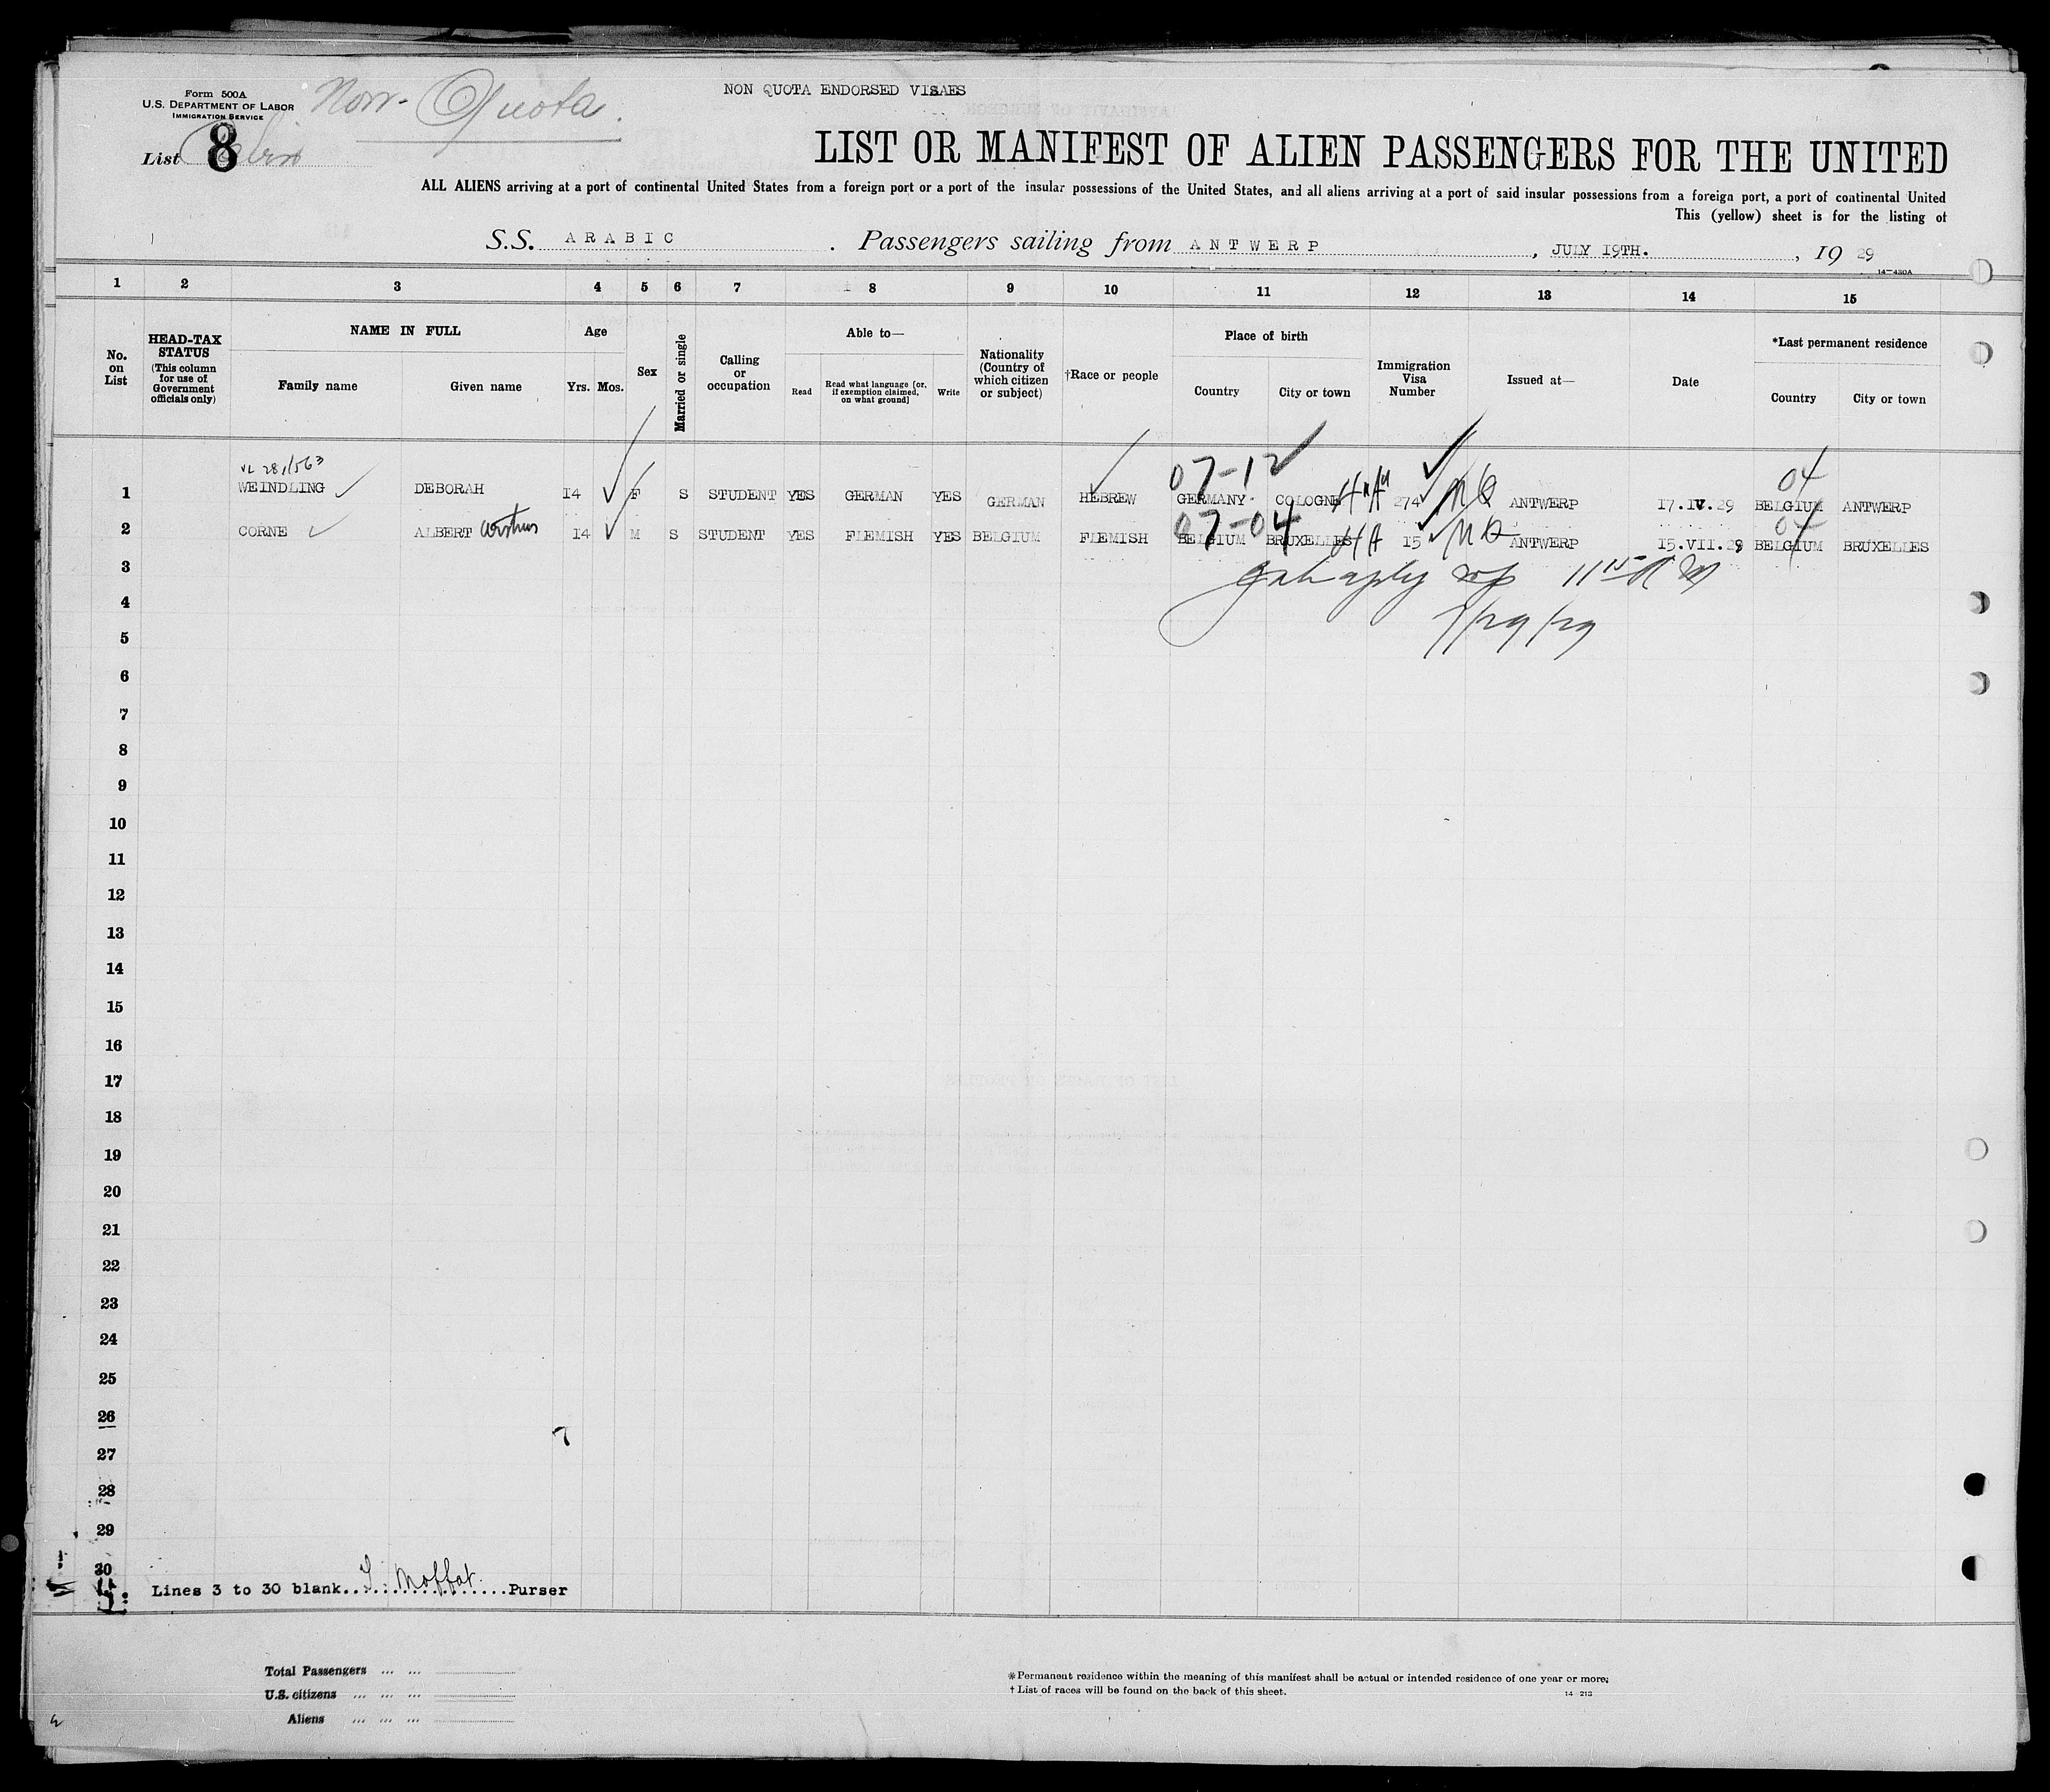 Form 500A
U.S. DEPARTMENT OF LABOR
IMMIGRATION SERVICE
Non-Quota.
NON QUOTA ENDORSED VISAES
List 8
LIST OR MANIFEST OF ALIEN PASSENGERS FOR THE UNITED
ALL ALIENS arriving at a port of continental United States from a foreign port or a port of the insular possessions of the United States, and all aliens arriving at a port of said insular possessions from a foreign port, a port of continental United
This (yellow) sheet is for the listing of
S.S. ARABIC . Passengers sailing from ANTWERP , JULY 19TH. , 19 29
14-430A
1 2 3 4 5 6 7 8 9 10 11 12 13 14 15
No. on List
HEAD-TAX STATUS
(This column for use of Government officials only)
NAME IN FULL
Family name Given name
Age
Yrs. Mos.
Sex
Married or single
Calling or occupation
Able to—
Read
Read what language [or, if exemption claimed, on what ground]
Write
Nationality (Country of which citizen or subject)
†Race or people
Place of birth
Country City or town
Immigration Visa Number
Issued at—
Date
*Last permanent residence
Country City or town
07-12 04
1 WEINDLING DEBORAH 14 F S STUDENT YES GERMAN YES GERMAN HEBREW GERMANY. COLOGNE 274 NQ ANTWERP 17.IV.29 BELGIUM ANTWERP
07-04 04
2 CORNE ALBERT 14 M S STUDENT YES FLEMISH YES BELGIUM FLEMISH BELGIUM BRUXELLES 15 NQ ANTWERP 15.VII.29 BELGIUM BRUXELLES
3
7/29/29
4
5
6
7
8
9
10
11
12
13
14
15
16
17
18
19
20
21
22
23
24
25
26
27
28
29
30
Lines 3 to 30 blank...Moffat...Purser
Total Passengers ... ...
U.S. citizens ... ... ...
Aliens ... ... ...
*Permanent residence within the meaning of this manifest shall be actual or intended residence of one year or more.
† List of races will be found on the back of this sheet.
14—213